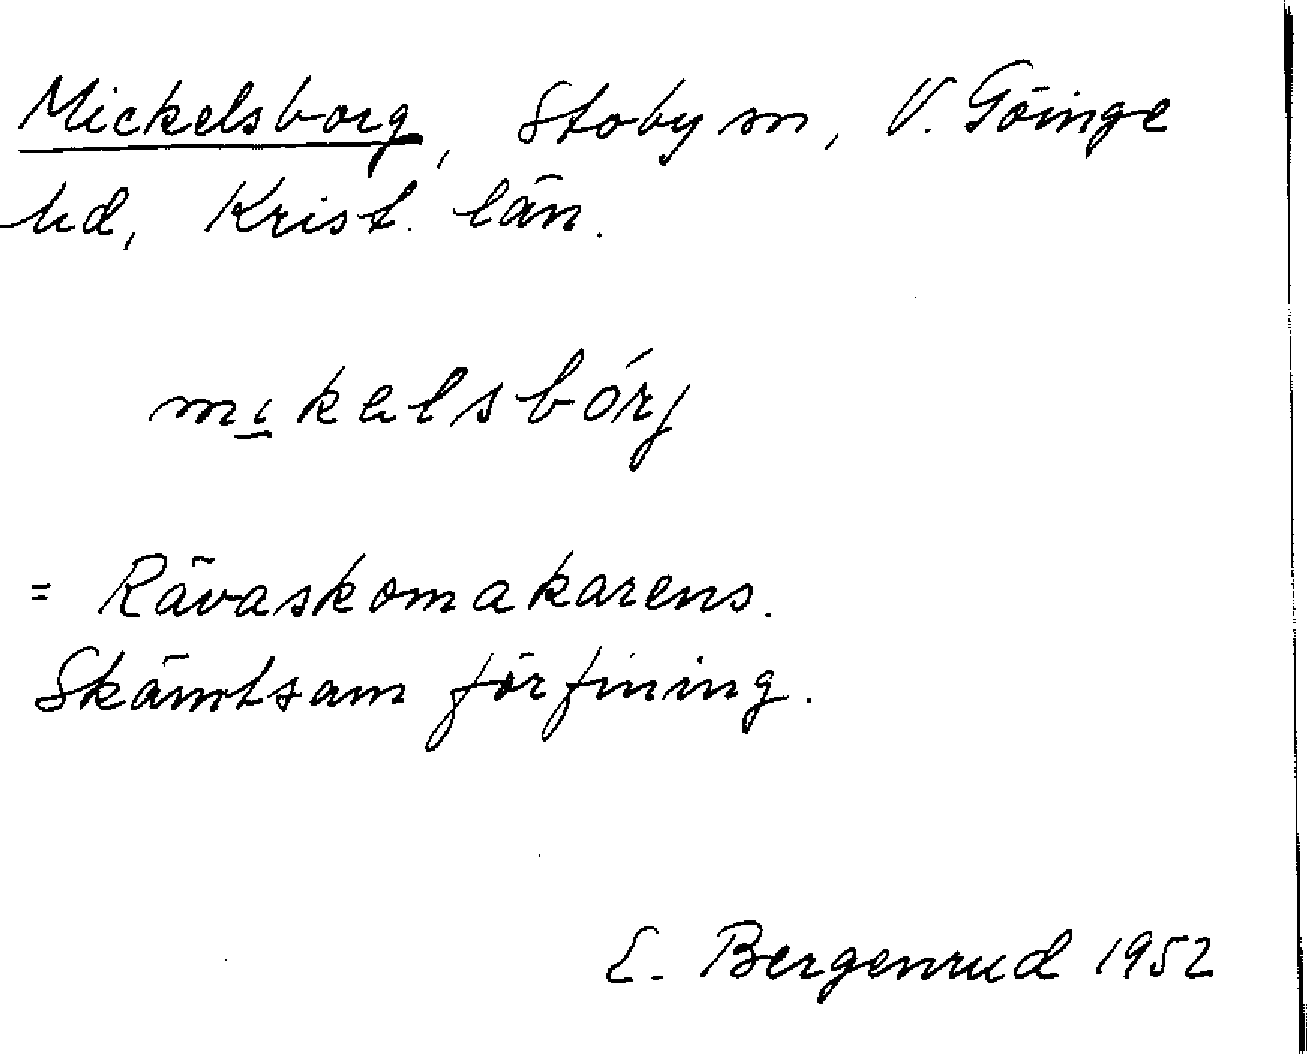 Mickelsborg, Stoby sn, V. Göinge
hd, Krist. län.
mi̲kelsbórj
= Rävaskomakarens.
Skämtsam förfining.
E. Bergenrud 1952